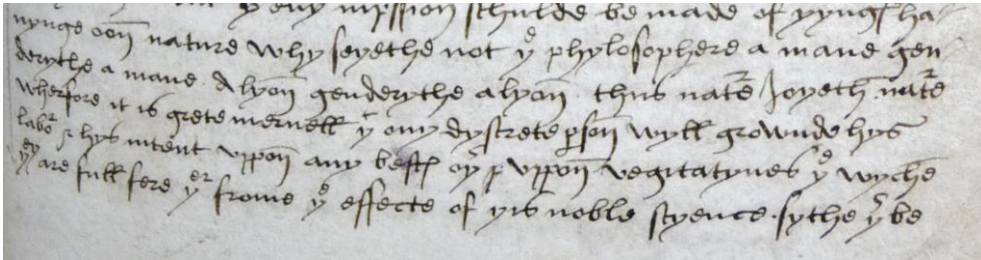 yt ony myssion schulde be made of yyngs ha-
vynge oon nature why seyethe not ye phylosophere a mane gen
derythe a mane. A lyon genderythe a lyon. thus natre Joyeth natre
wherfore it is grete mervell yt ony dyscrete pson wyll grownde hys
labor & hys intent vppon any bestys or vppon vegitatyues ye wyche
yey are full fere yer frome ye effecte of yis noble scyence. sythe yt be